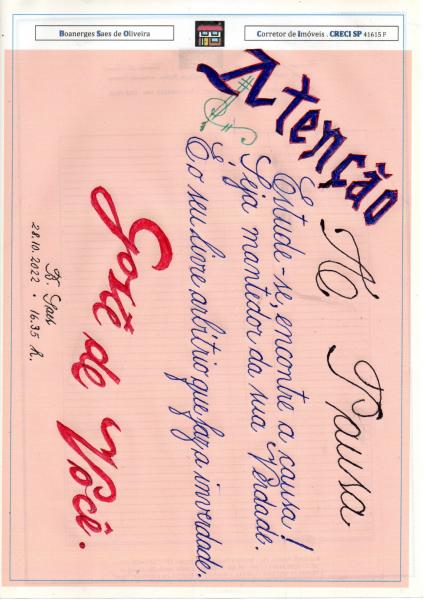 Boanerges Saes de Oliveira
Corretor de Imóveis . CRECI SP 41615 F
Atenção
Pausa
Estude-se, encontre a causa!
Seja mantedor da sua Verdade.
É, o seu livre arbítrio que faz a inverdade.
de Você.
B. Saes
28.10.2022 . 16.35 h.